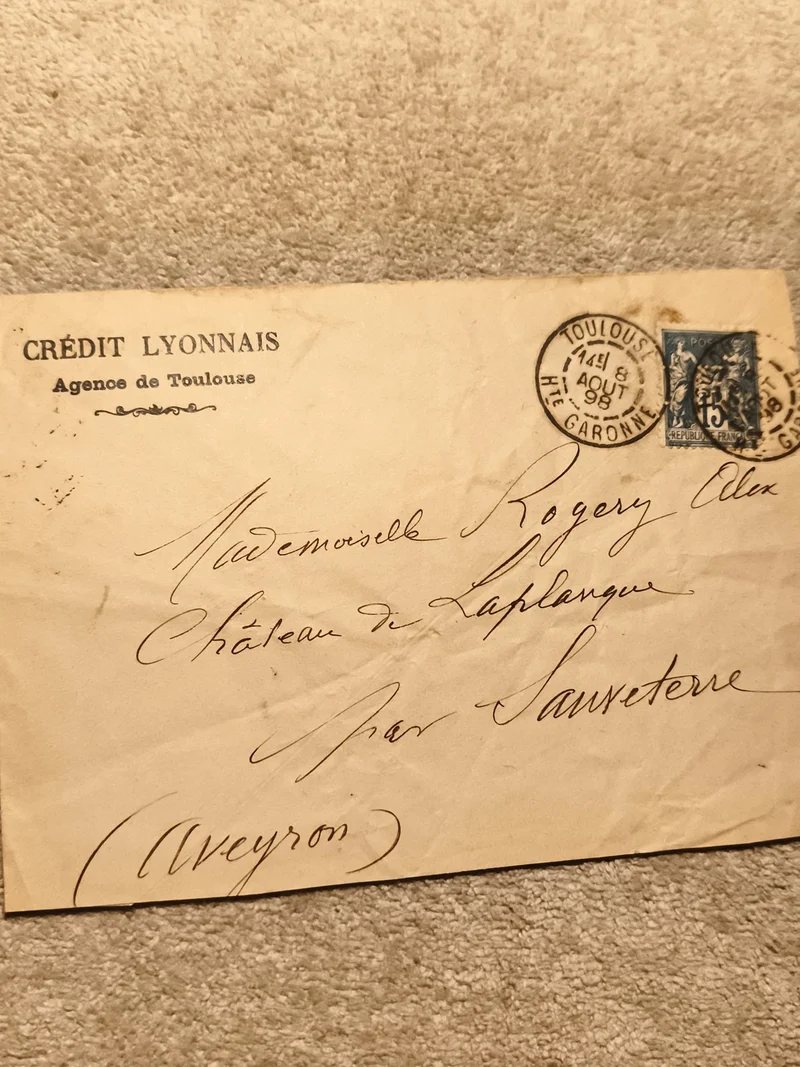 CRÉDIT LYONNAIS
Agence de Toulouse
TOULOUSE
8
AOUT
98
HTE GARONNE
POS
15
REPUBLIQUE FRANC
98
GAR
Mademoiselle Rogery Alix
Château de Laplanque
par Sauveterre
(Aveyron)